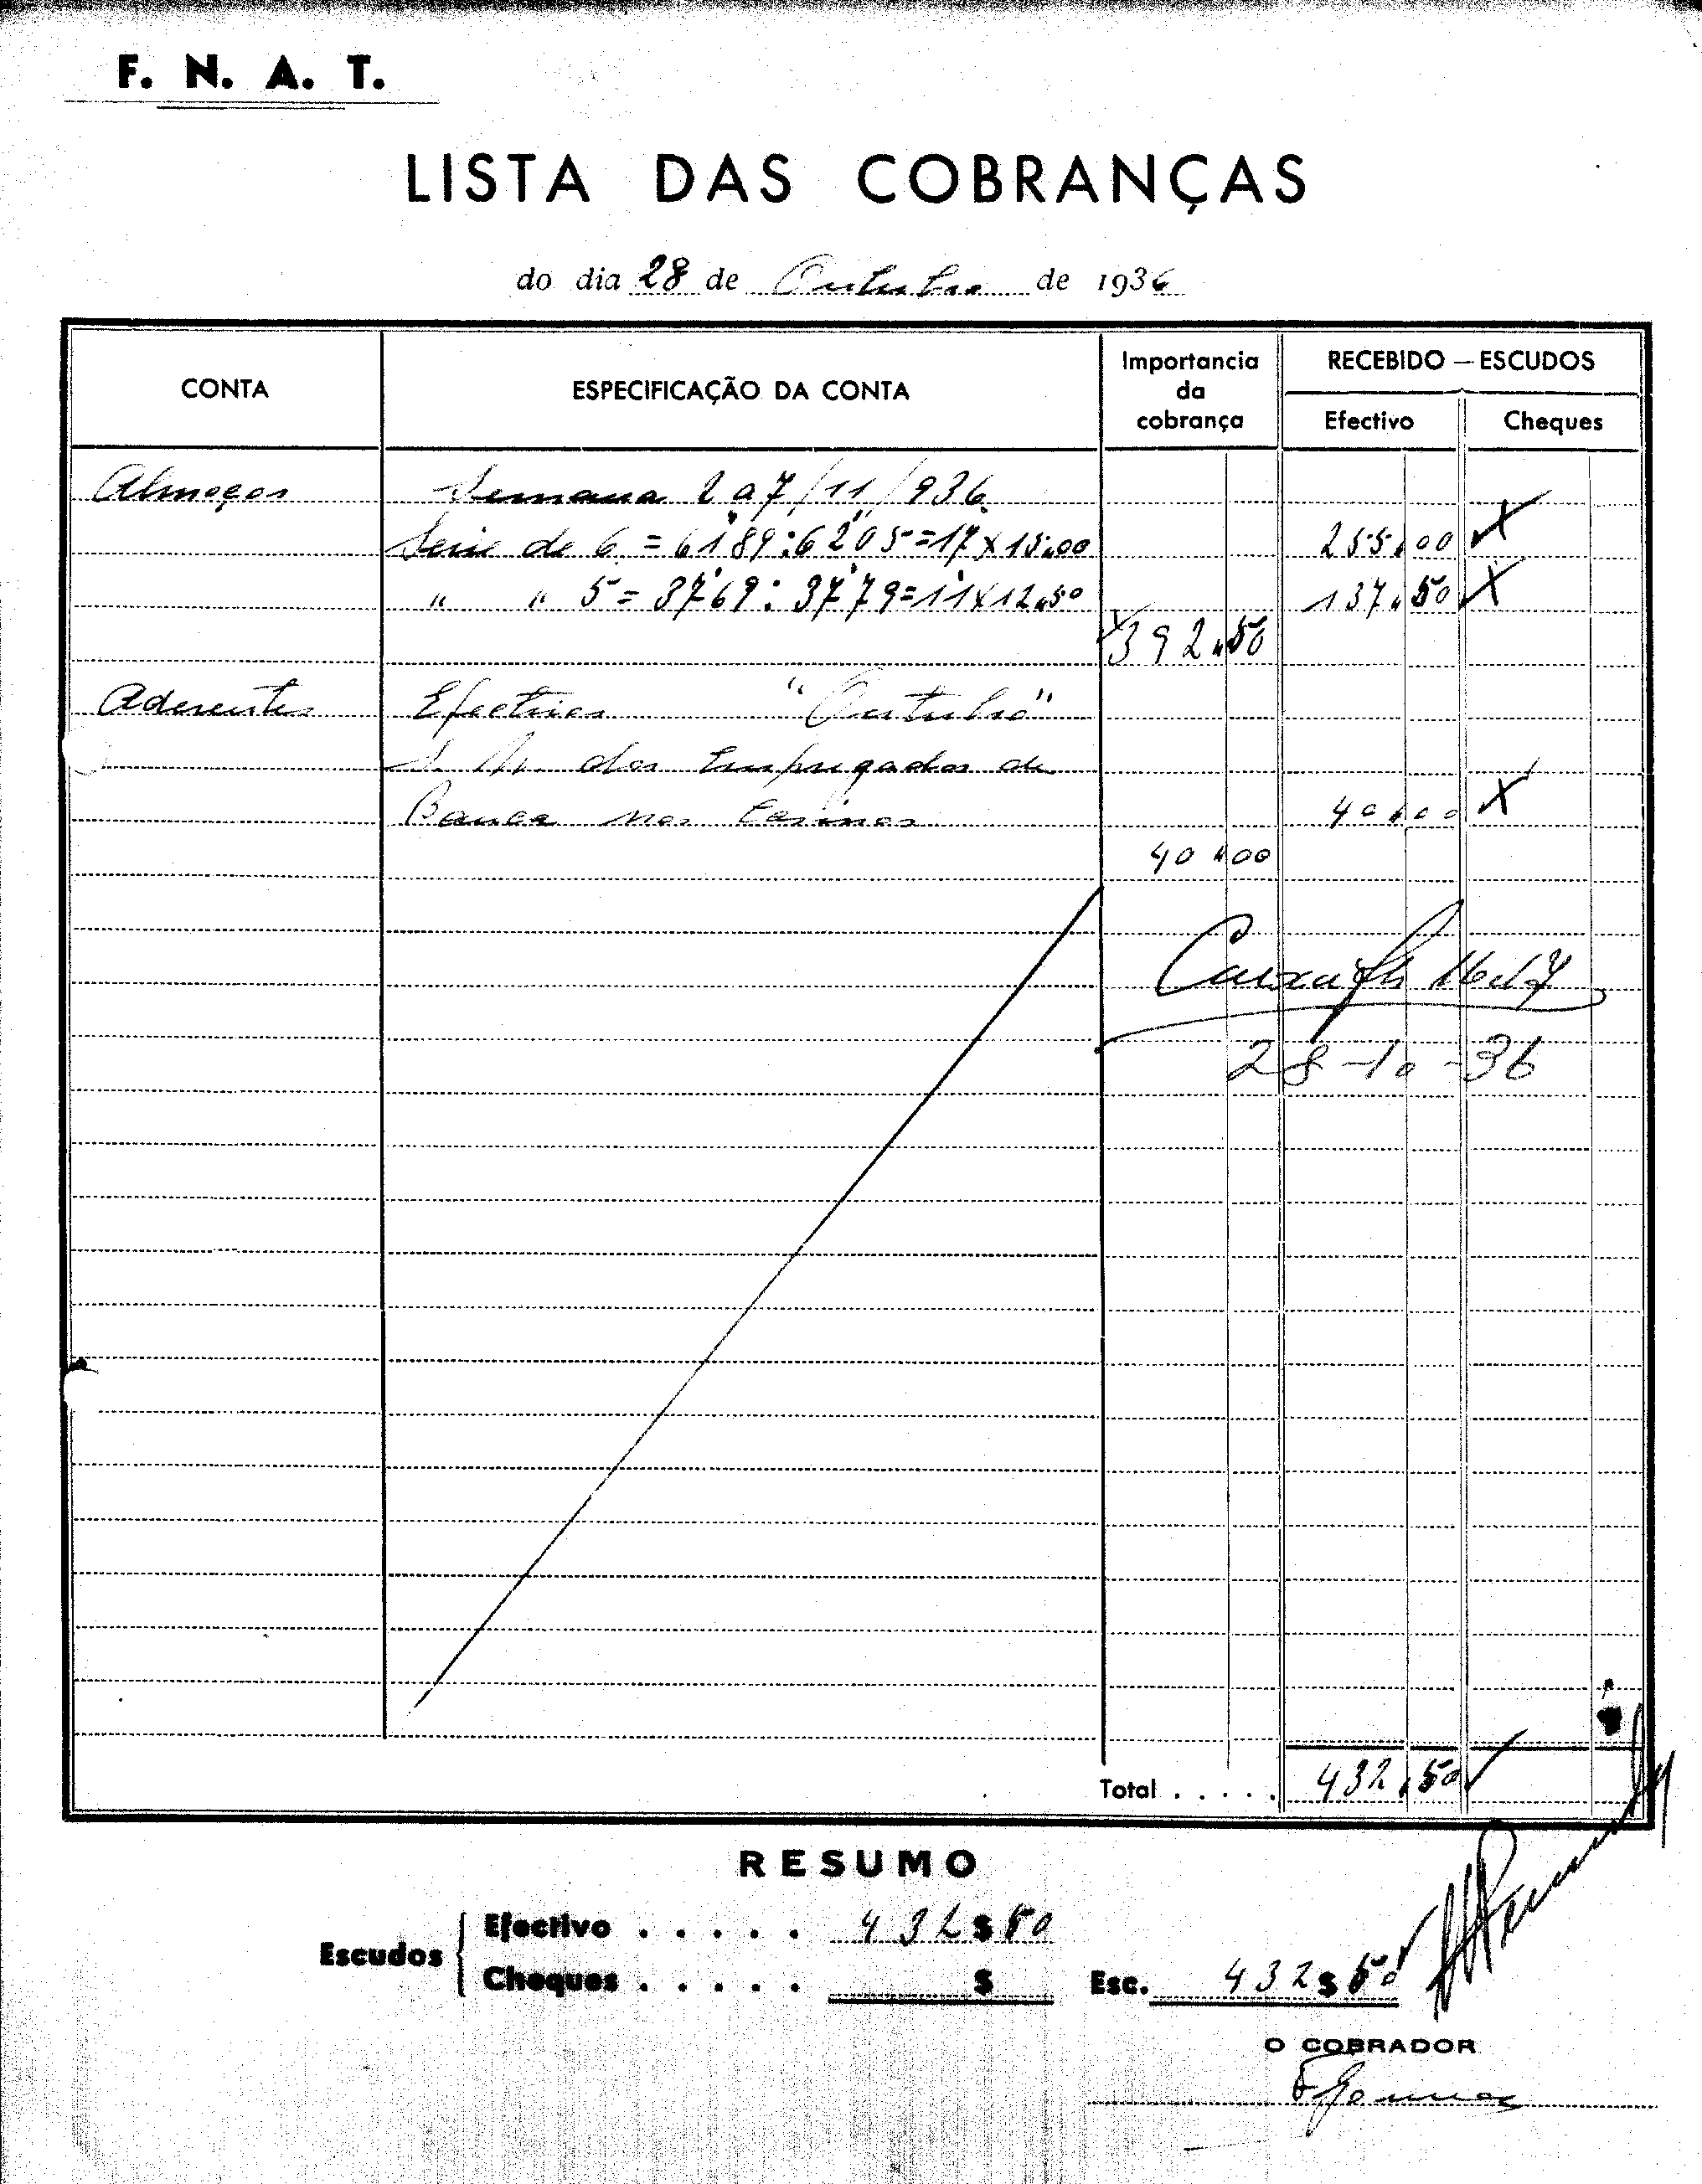 F. N. A. T.
LISTA DAS COBRANÇAS
do dia 28 de Outubro de 1936
CONTA
ESPECIFICAÇÃO DA CONTA
Importancia da cobrança
RECEBIDO — ESCUDOS
Efectivo
Cheques
Almoços Semana 2 a 7/11/936
Serie de 6 = 6189:6205=17x15,00 255,00
" " 5 = 3769:3779=11x12,50 137,50
392,50
Aderentes Efectivos "Outubro"
S. N. dos Empregados de
Banca nos Casinos 40,00
40,00
Caixa fls 16 e 17
28-10-36
Total . . . . . 432,50
RESUMO
Escudos
Efectivo . . . . . 432$50
Cheques . . . . . $
Esc. 432$50
O COBRADOR